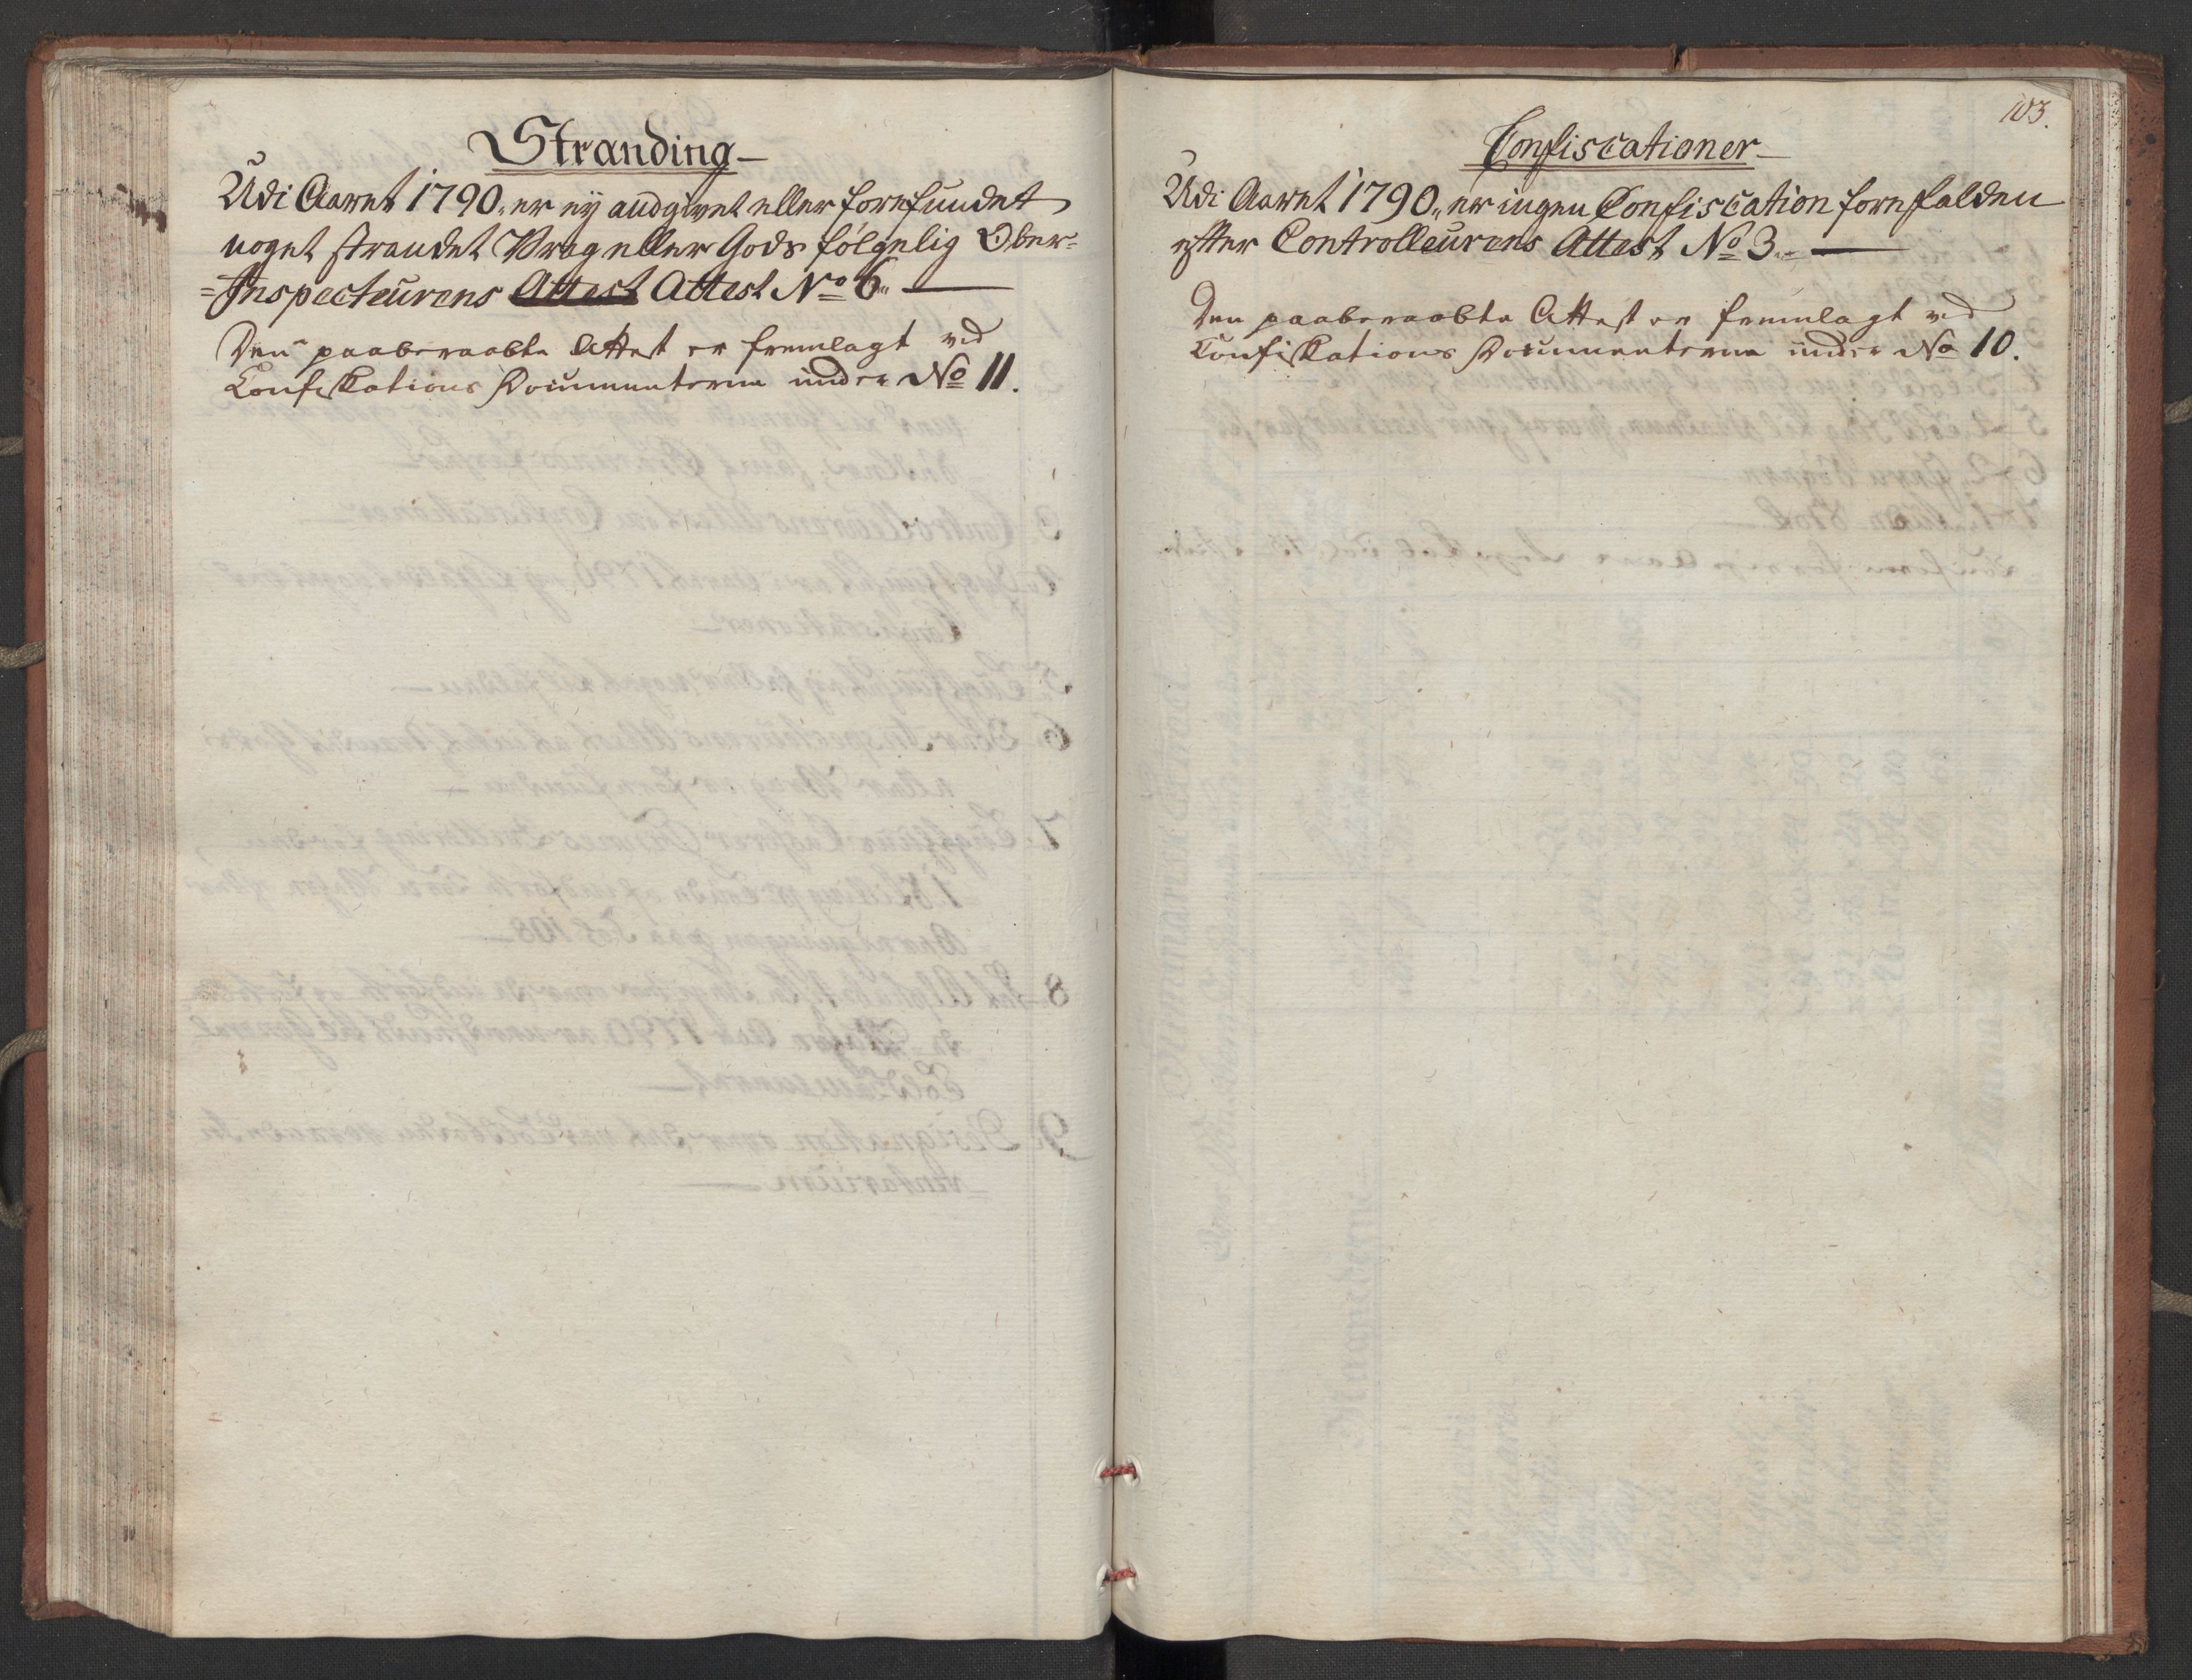 Stranding
Udi Aaret 1790, er ey andgivet eller forefundet
noget strandet Vrag eller Gods følgelig Ober-
=Inspecteurens Attest Attest No 6.
Den paaberaabte Attest er fremlagt ved
Confiskations Documenterne under No 11.
103.
Confiscationer
Udi Aaret 1790, er ingen Confiscation forefalden
efter Controlleurens Attest No 3.
Den paaberaabte Attest er fremlagt ved
Confiskations Documenterne under No 10.